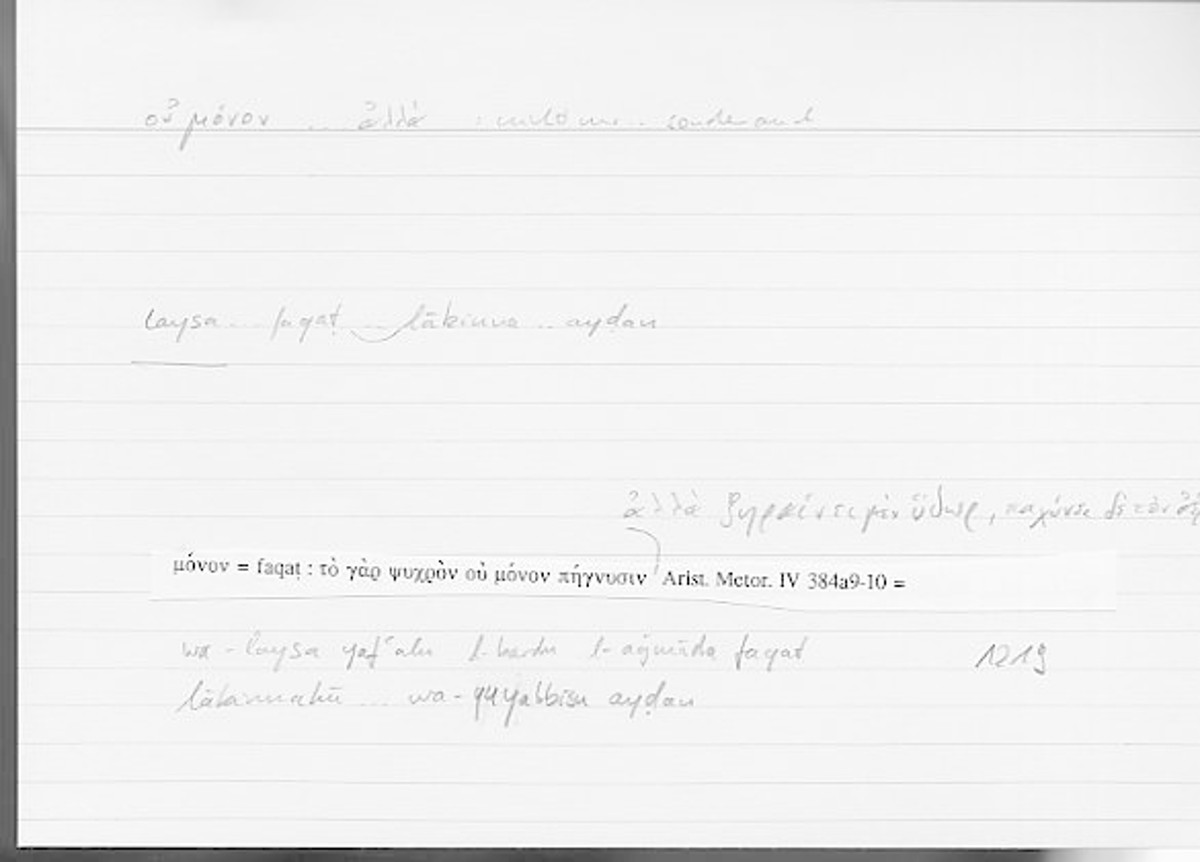 οὐ μόνον .. ἀλλὰ : nicht nur .. sondern auch
laysa ... faqaṭ ... lākinna .. ayḍan
ἀλλὰ ξηραίνει μὲν ὕδωρ, παχύνει δὲ τὸν
μόνον = faqaṭ : τὸ γὰρ ψυχρὸν οὐ μόνον πήγνυσιν Arist. Meteor. IV 384a9-10 =
wa-laysa yafʿalu l-bardu l-ǧumūda faqaṭ 1219
lākinnahū ... wa-yuyabbisu ayḍan